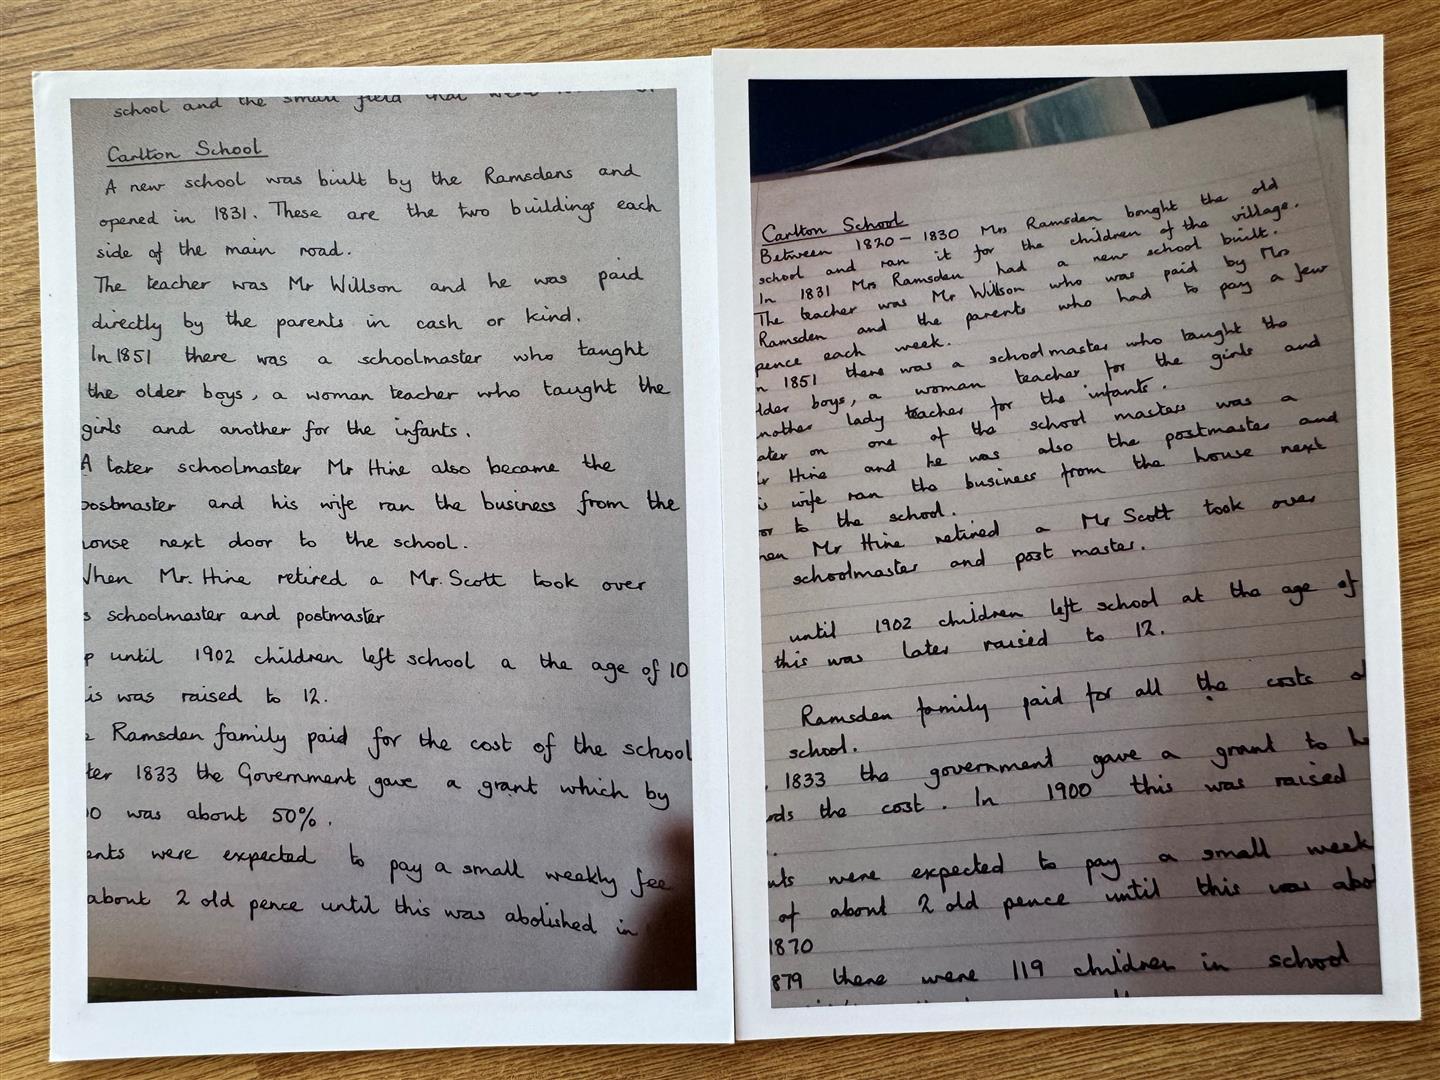 school and the small field that were
Carlton School
A new school was built by the Ramsdens and
opened in 1831. These are the two buildings each
side of the main road.
The teacher was Mr Willson and he was paid
directly by the parents in cash or kind.
In 1851 there was a schoolmaster who taught
the older boys, a woman teacher who taught the
girls and another for the infants.
A later schoolmaster Mr Hine also became the
postmaster and his wife ran the business from the
house next door to the school.
When Mr. Hine retired a Mr. Scott took over
s schoolmaster and postmaster
p until 1902 children left school a the age of 10
is was raised to 12.
e Ramsden family paid for the cost of the school
ter 1833 the Government gave a grant which by
00 was about 50%.
ents were expected to pay a small weekly fee
about 2 old pence until this was abolished in
Carlton School
Between 1820 - 1830 Mrs Ramsden bought the old
school and ran it for the children of the village.
In 1831 Mrs Ramsden had a new school built.
The teacher was Mr Willson who was paid by Mrs
Ramsden and the parents who had to pay a few
pence each week.
n 1851 there was a schoolmaster who taught the
lder boys, a woman teacher for the girls and
nother lady teacher for the infants.
ater on one of the school masters was a
r Hine and he was also the postmaster and
is wife ran the business from the house next
or to the school.
hen Mr Hine retired a Mr Scott took over
schoolmaster and post master.
until 1902 children left school at the age of
this was later raised to 12.
Ramsden family paid for all the costs of
school.
1833 the government gave a grant to he
rds the cost. In 1900 this was raised
nts were expected to pay a small week
of about 2 old pence until this was abo
1870
879 there were 119 children in school